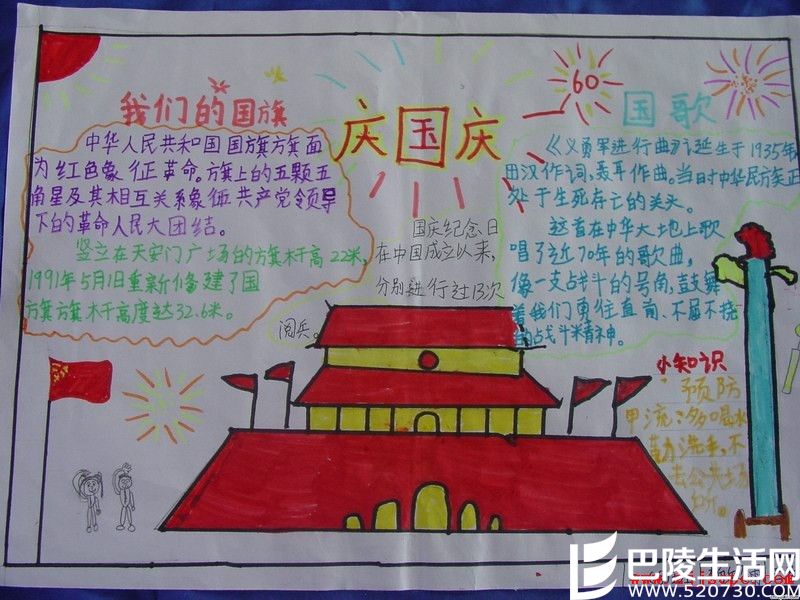 我们的国旗
中华人民共和国国旗旗面
为红色象征革命。旗上的五颗五
角星及其相互关系象征共产党领导
下的革命人民大团结。
竖立在天安门广场的旗杆高22米,
1991年5月1日重新修建了国
旗旗杆高度达32.6米。
庆国庆
国庆纪念日
在中国成立以来,
分别进行过13次
阅兵。
60
国歌
《义勇军进行曲》诞生于1935年
田汉作词,聂耳作曲。当时中华民族正
处于生死存亡的关头。
这首在中华大地上歌
唱了近70年的歌曲,
像一支战斗的号角,鼓舞
着我们勇往直前、不屈不挠
的战斗精神。
小知识
预防
甲流:多喝水
勤洗手,不
去公共场
所。
巴陵生活网
www.520730.com